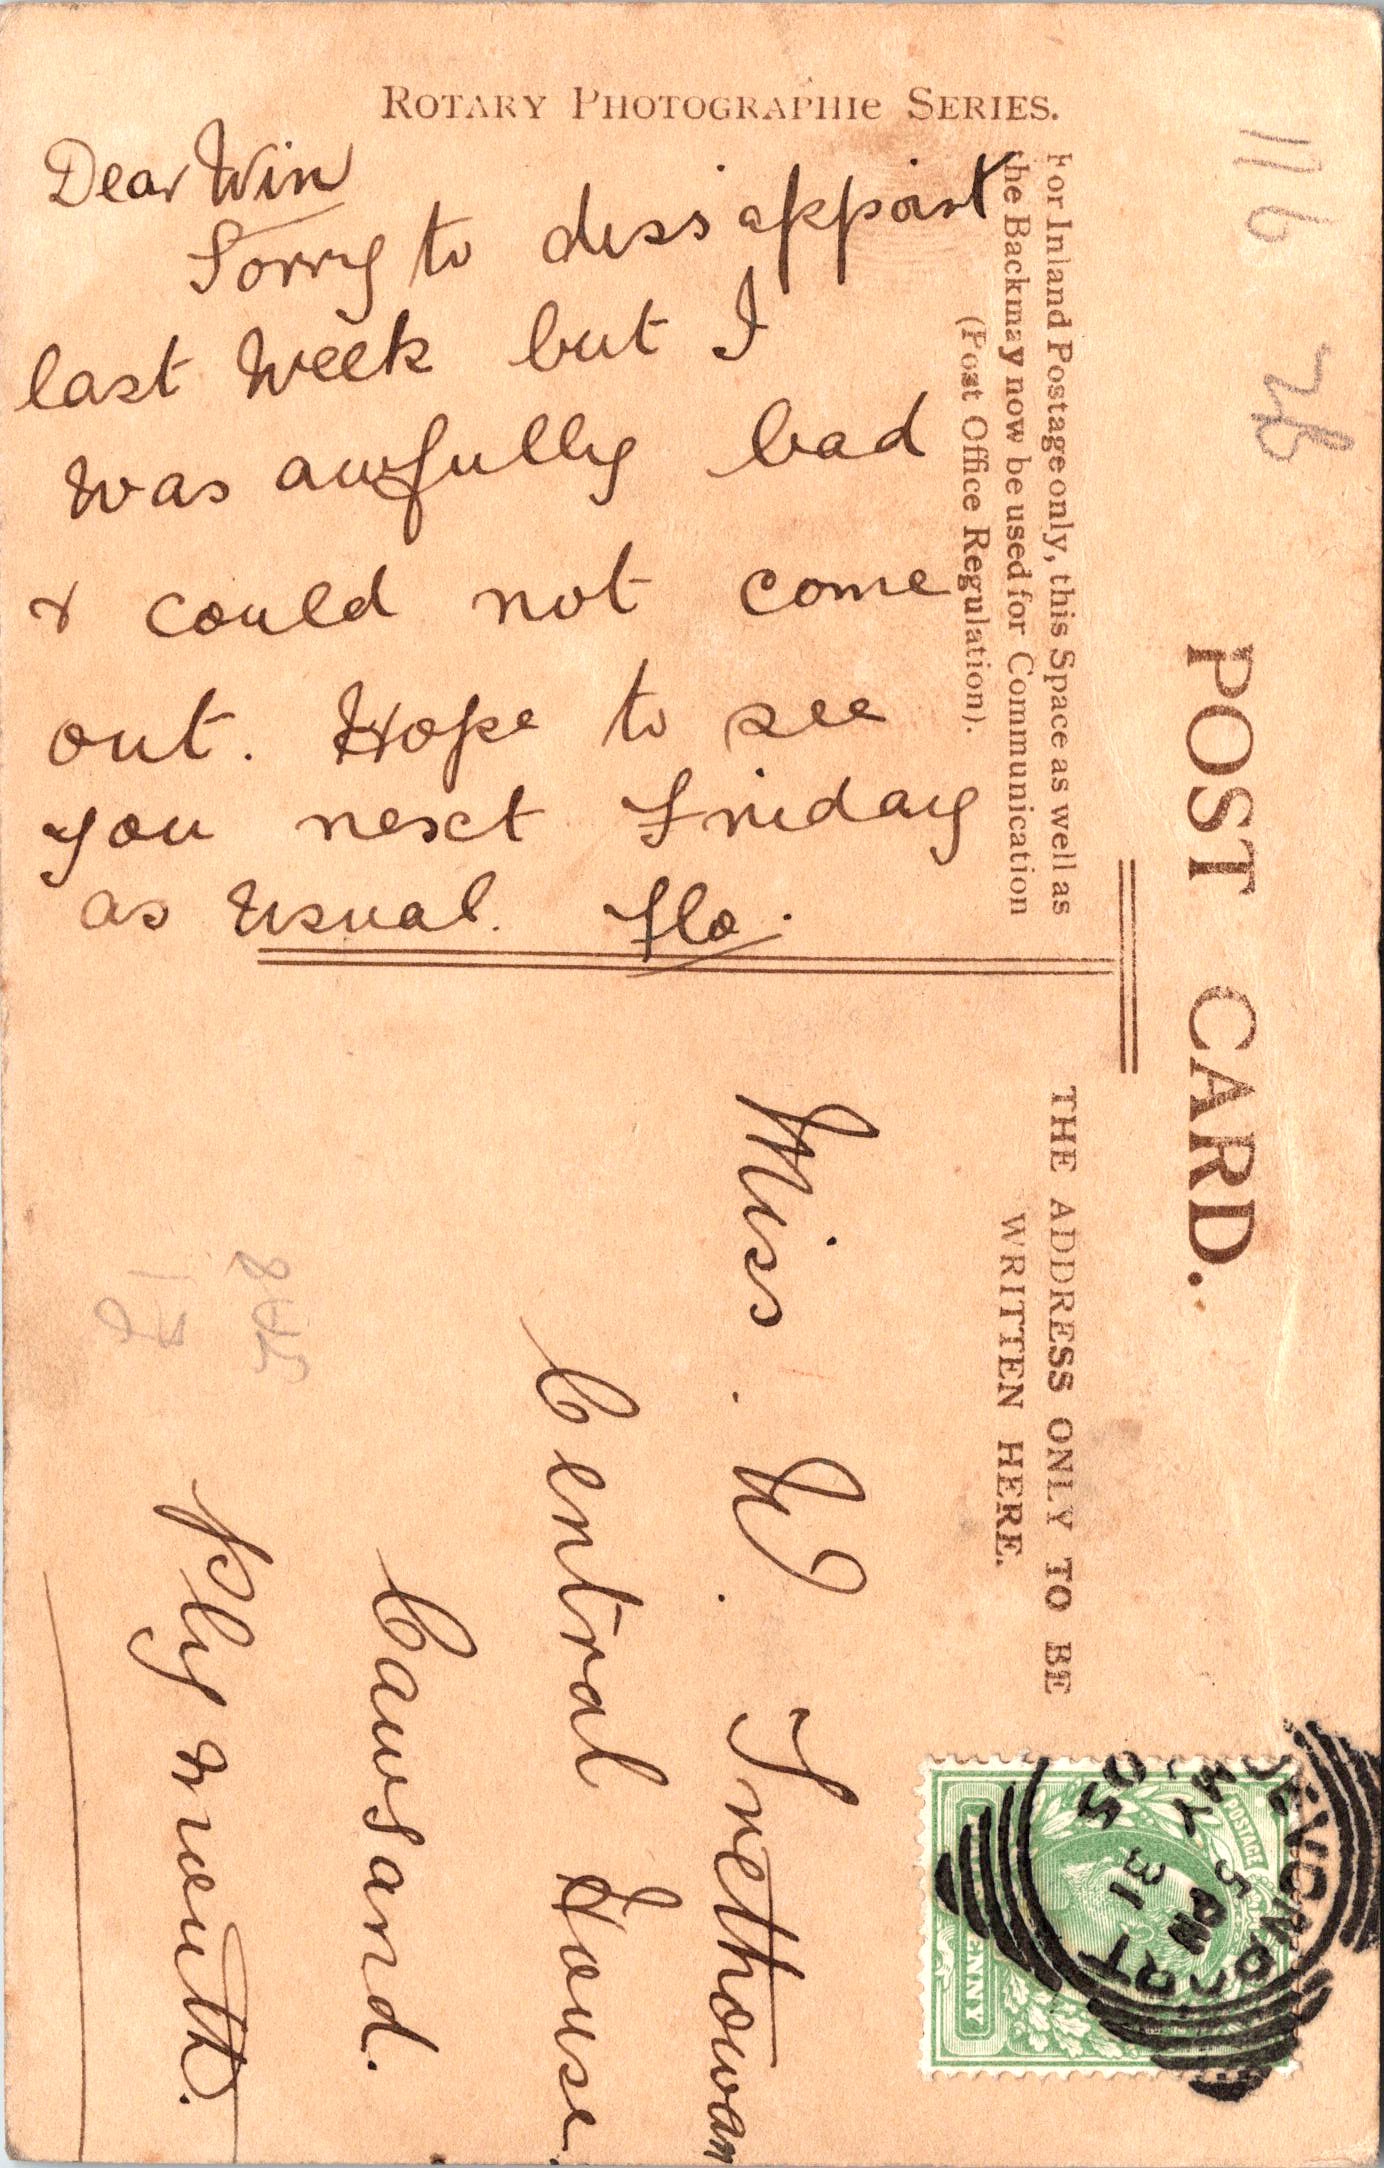 ROTARY PHOTOGRAPHIC SERIES.
Dear Win
Sorry to dissappoint
last week but I
was awfully bad
& could not come
out. Hope to see
you next Friday
as usual. Flo.
POST CARD.
For Inland Postage only, this Space as well as
the Back may now be used for Communication
(Post Office Regulation).
THE ADDRESS ONLY TO BE
WRITTEN HERE.
Miss. W. Trethowan
Central House
Cawsand.
Plymouth.
DEVONPORT
5 AM
MY 31
05
POSTAGE
116